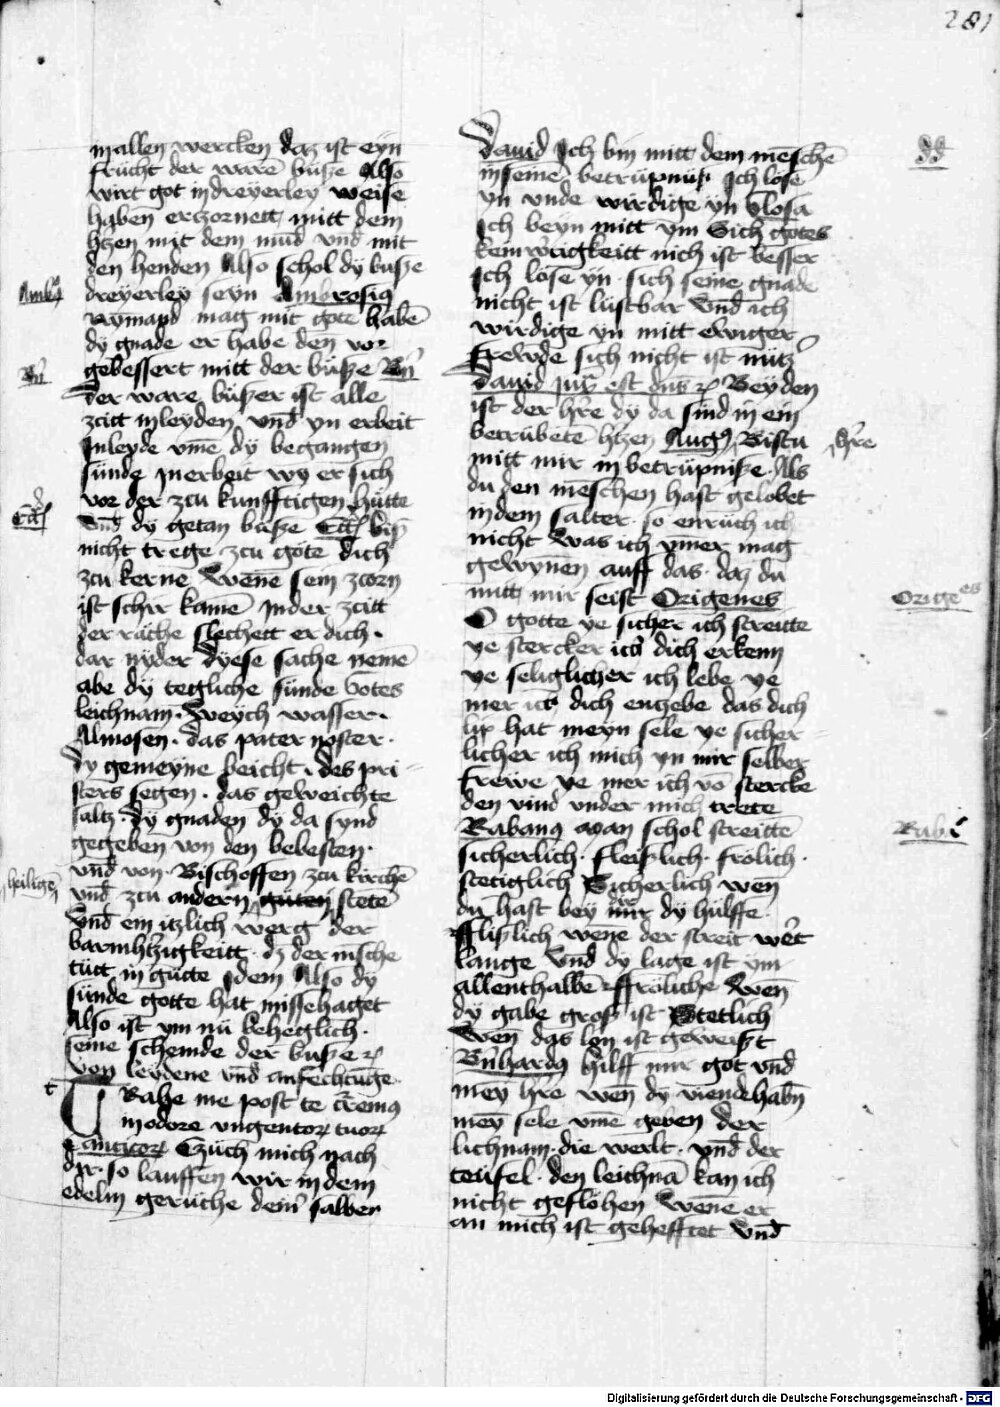 281
in allen wercken daz ist eyn
frücht der warē büsze Also
wirt got in dreyerley weise
haben erzcornett mitt dem
htzen mit dem mūd vnd mit
den henden Also schol dÿ busze
Ambrꝰ
dreyerley seyn Ambrosiꝰ
Nymand mag mit gote habē
dÿ gnade er habe den vor
gebessert mitt der büsze Bn̄
Bn̄
Der ware büszer ist alle
zcitt in leyden vnd yn erbeit
In leyde vmē dÿ begangen
sünde In erbeit wy er sich
vor der zcu kunfftigen hütte
Ecc̄
vnd dÿ getan büsze Ecc̄ bisz
nicht trege zcu gote dich
zcu kernē wenē sein zcorn
ist schir kamē In der zcitt
der rache slechett er dich.
dar nyder dÿese sache nemē
abe dÿ tegliche sünde Gotes
leichnam. weych wasser.
Almosen. das pater noster.
dy gemeyne beicht. des pri-
sters segen. das geweichte
saltz. dÿ gnaden dÿ da synd
gegeben von den bebesten.
vnd von Bischoffen zcu kirchē
heiligen
vnd zcu andern güten stete
vnd ein itzlich werg der
barmhtzigkeitt. dz der mēsche
tütt in gütte Idem Also dÿ
sünde gotte hat missehaget
Also ist ym nü beheglich.
seine schemde der busze ꝛc
von leydene vnd anfechtūge
t
TRahe me post te cremꝰ
in odore vngentoꝝ tuoꝝ
Canticoꝝ Czüch mich nach
dir. so lauffen wir in dem
edeln gerüche dein̄ salben
Dauid Ich bin mitt dem mēschē
dd
in seinē betrüpnüsz. Ich löse
yn vnde wirdige yn Glosa
Ich beyn mitt ym Sich gotes
kein wtigkeitt nich ist besser
Ich löse yn. sich seine gnade
nicht ist lüstbar vnd ich
wirdige yn mitt ewiger
frewde sich nicht ist nütz
Dauid iux̄ est dn̄s ꝛc Bey den
ist der hr̄e dÿ da sind in ein
betrübetē htzen Augꝰ Bistu
hr̄e
mitt mir in betrüpnisze. Als
du den mēschen hast gelobet
in dem salter. so enrüch ich
nicht was ich ymer mag
gewynnen auff das. daz du
mitt mir seist Origenes
Origenes
O gotte ye sicher ich streitte
ye stercker ich dich erkenn
ye seliglicher ich lebe ye
mer ich dich entzebe das dich
lip hat meyn sele ye sicher-
licher ich mich yn mir selber
frewe ye mer ich vō stercke
den vind vnder mich trete
Rabanꝰ Man schol streittē
Rabꝰ
sicherlich. fleiszlich. frölich.
stetiglich Sicherlich wen
du hast bey mir dÿ hülffe
ffliszlich wene der streit wēt
lange vnd dy lage ist ym
allenthalbē ffröliche wen̄
dÿ gabe grosz ist Stetlich
wen̄ das lon ist geweiszt
Bn̄hardꝰ hilff mir got vnd
mey hr̄e wen̄ dÿ viende habn̄
mey sele vmē geben der
lichnam. die werlt. vnd der
teüfel. den leichnā kan ich
nicht geflöhen wene er
an mich ist gehefftet vnd
Digitalisierung gefördert durch die Deutsche Forschungsgemeinschaft - DFG